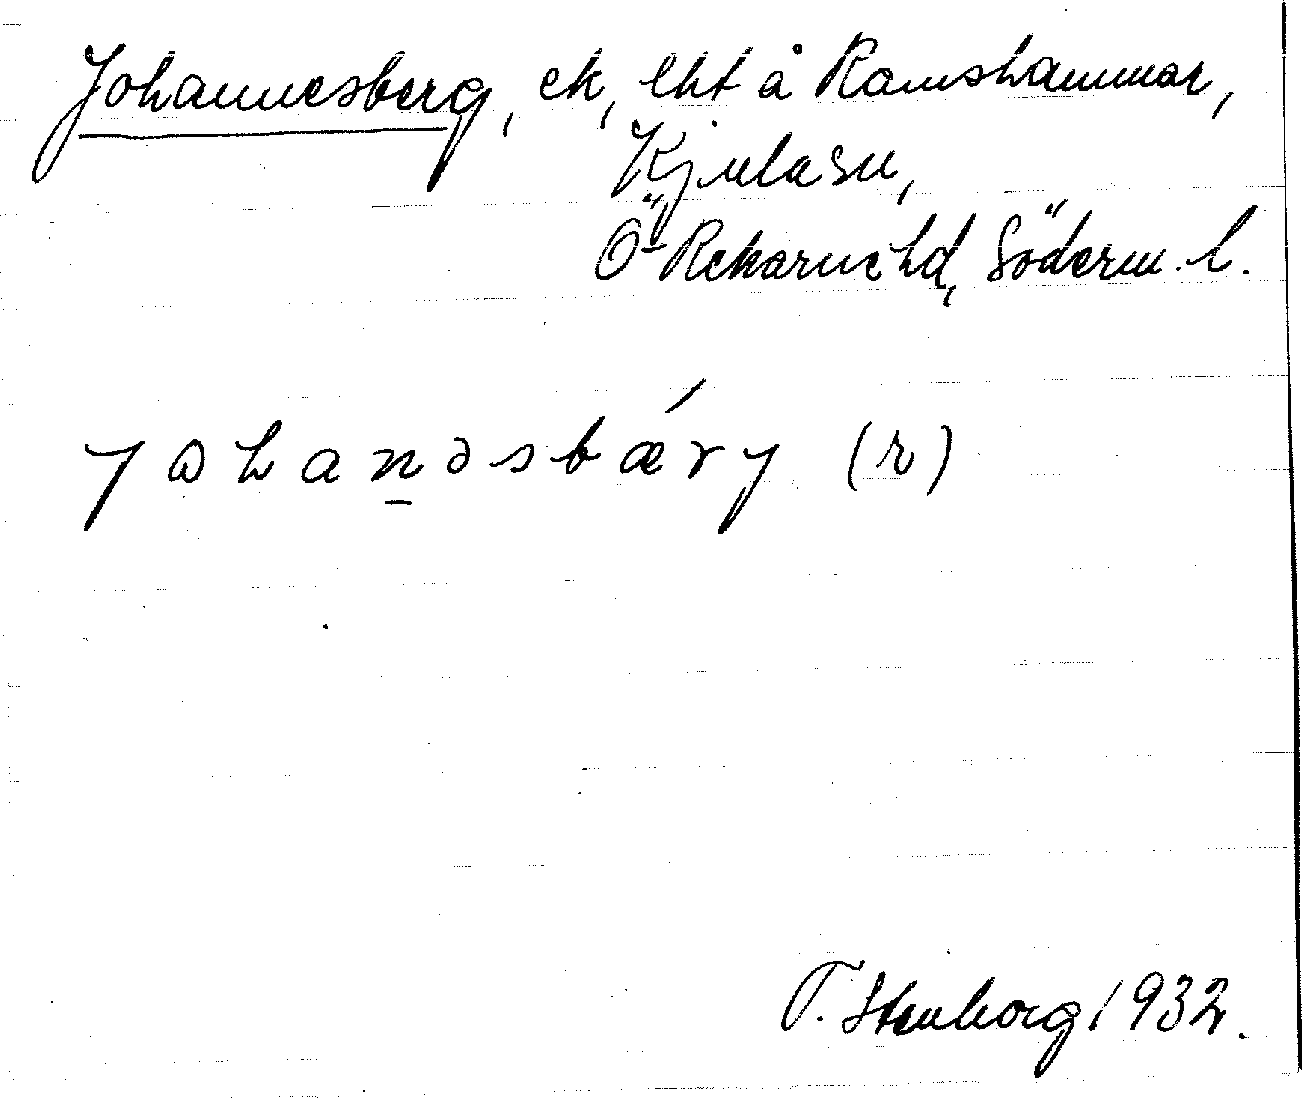 Johannesberg, ek, lht å Ramshammar,
Kjula sn,
Ö-Rekarne hd, Söderm. l.
jɷhanəsbǽrj (r)
T. Stenborg 1932.